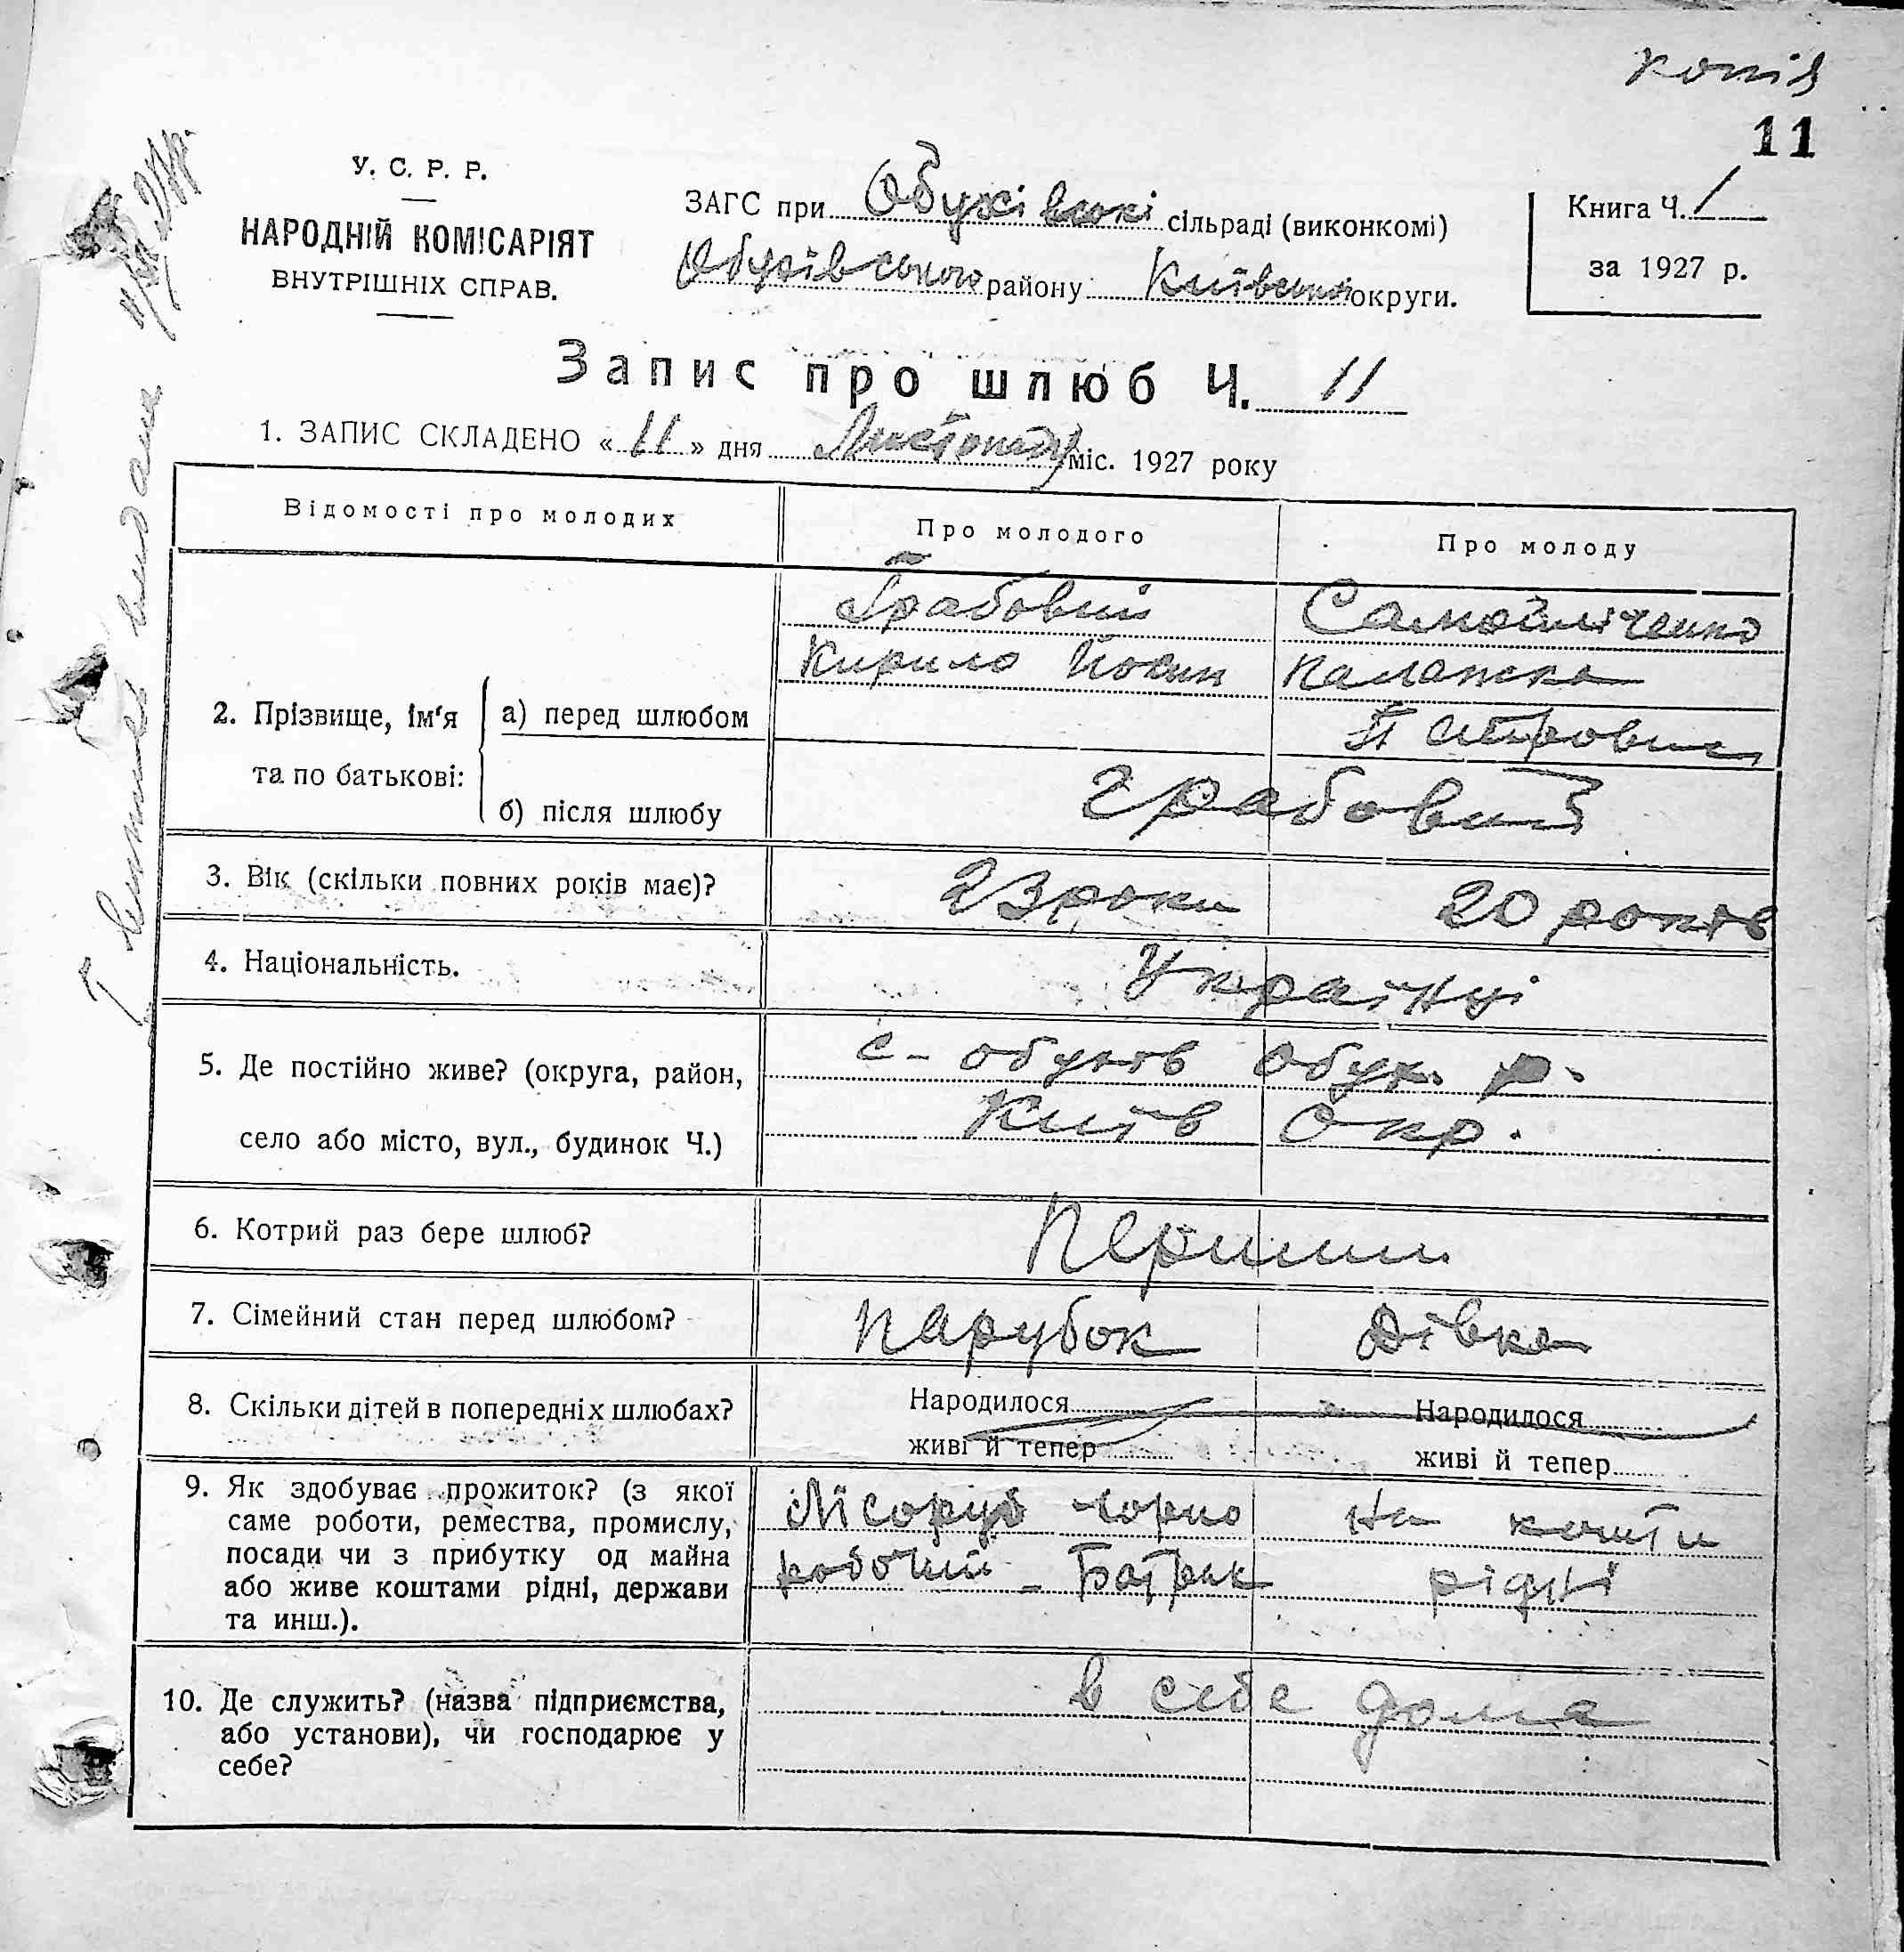 копія
11
У. С. Р. Р.
НАРОДНІЙ КОМІСАРІЯТ
ВНУТРІШНІХ СПРАВ.
ЗАГС при Обухівські сільраді (виконкомі)
Обухівського району Київської округи.
Книга Ч. 1
за 1927 р.
Запис про шлюб Ч. 11
1. ЗАПИС СКЛАДЕНО « 11 » дня Листопаду міс. 1927 року
Відомості про молодих
Про молодого
Про молоду
2. Прізвище, ім'я та по батькові:
а) перед шлюбом
Грабовий
Кирило Йосип
Самойліченко
Палажка
Петровна
б) після шлюбу
Грабовий
3. Вік (скільки повних років має)?
23 роки
20 років
4. Національність.
Українці
5. Де постійно живе? (округа, район,
село або місто, вул., будинок Ч.)
с- Обухів Обух. р.
Київ Окр.
6. Котрий раз бере шлюб?
Перший
7. Сімейний стан перед шлюбом?
Парубок
Дівка
8. Скільки дітей в попередніх шлюбах?
Народилося
живі й тепер
Народилося
живі й тепер
9. Як здобуває прожиток? (з якої
саме роботи, ремества, промислу,
посади чи з прибутку од майна
або живе коштами рідні, держави
та инш.).
Лісоруб чорно
робочий - Батрак
на кошти
рідні
10. Де служить? (назва підприємства,
або установи), чи господарює у
себе?
в себе дома
Витяг видано